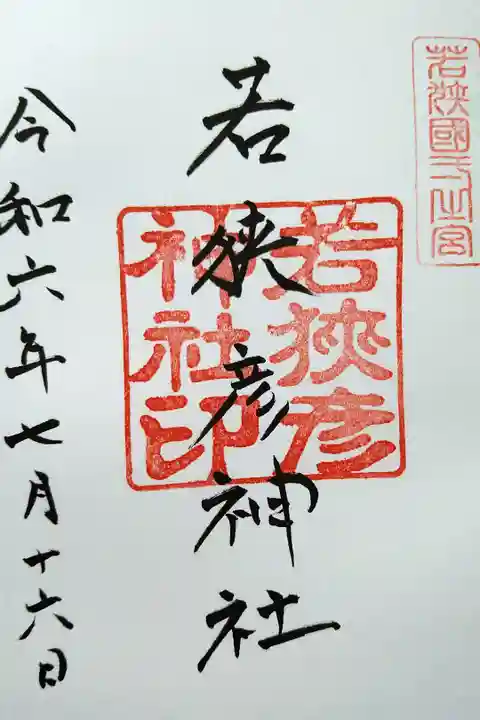 若狹國一之宮
若狹彦
神社印
若狹彦神社
令和六年七月十六日